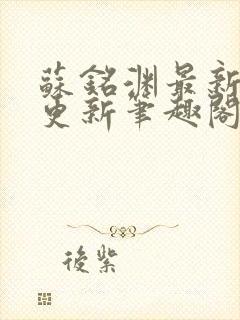 蘇銘渊最新
更新筆趣閣
後紫